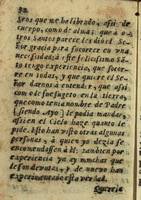 32
gros que me ha librado, assi de
cuerpo, como de alma: que à o-
tros Santos parece les dió el Se-
ñor gracia para socorrer en una
necessidad; à este felicissimo Sã-
to tengo experiencia, que socor-
re en todas, y que quiere el Se-
ñor darnos à entender, que assi
como le fue sugeto en la tierra,
que como tenia nombre de Padre
(siendo Ayo) le podia mandar,
assi en el Cielo haze quanto le
pide. Esto han visto otras algunas
personas, à quien yo dezia se
encomendassen à èl; tambien por
experiencia ya ay muchas que
le son devotas, y de nuevo han
experimentado esta verdad.
Queria